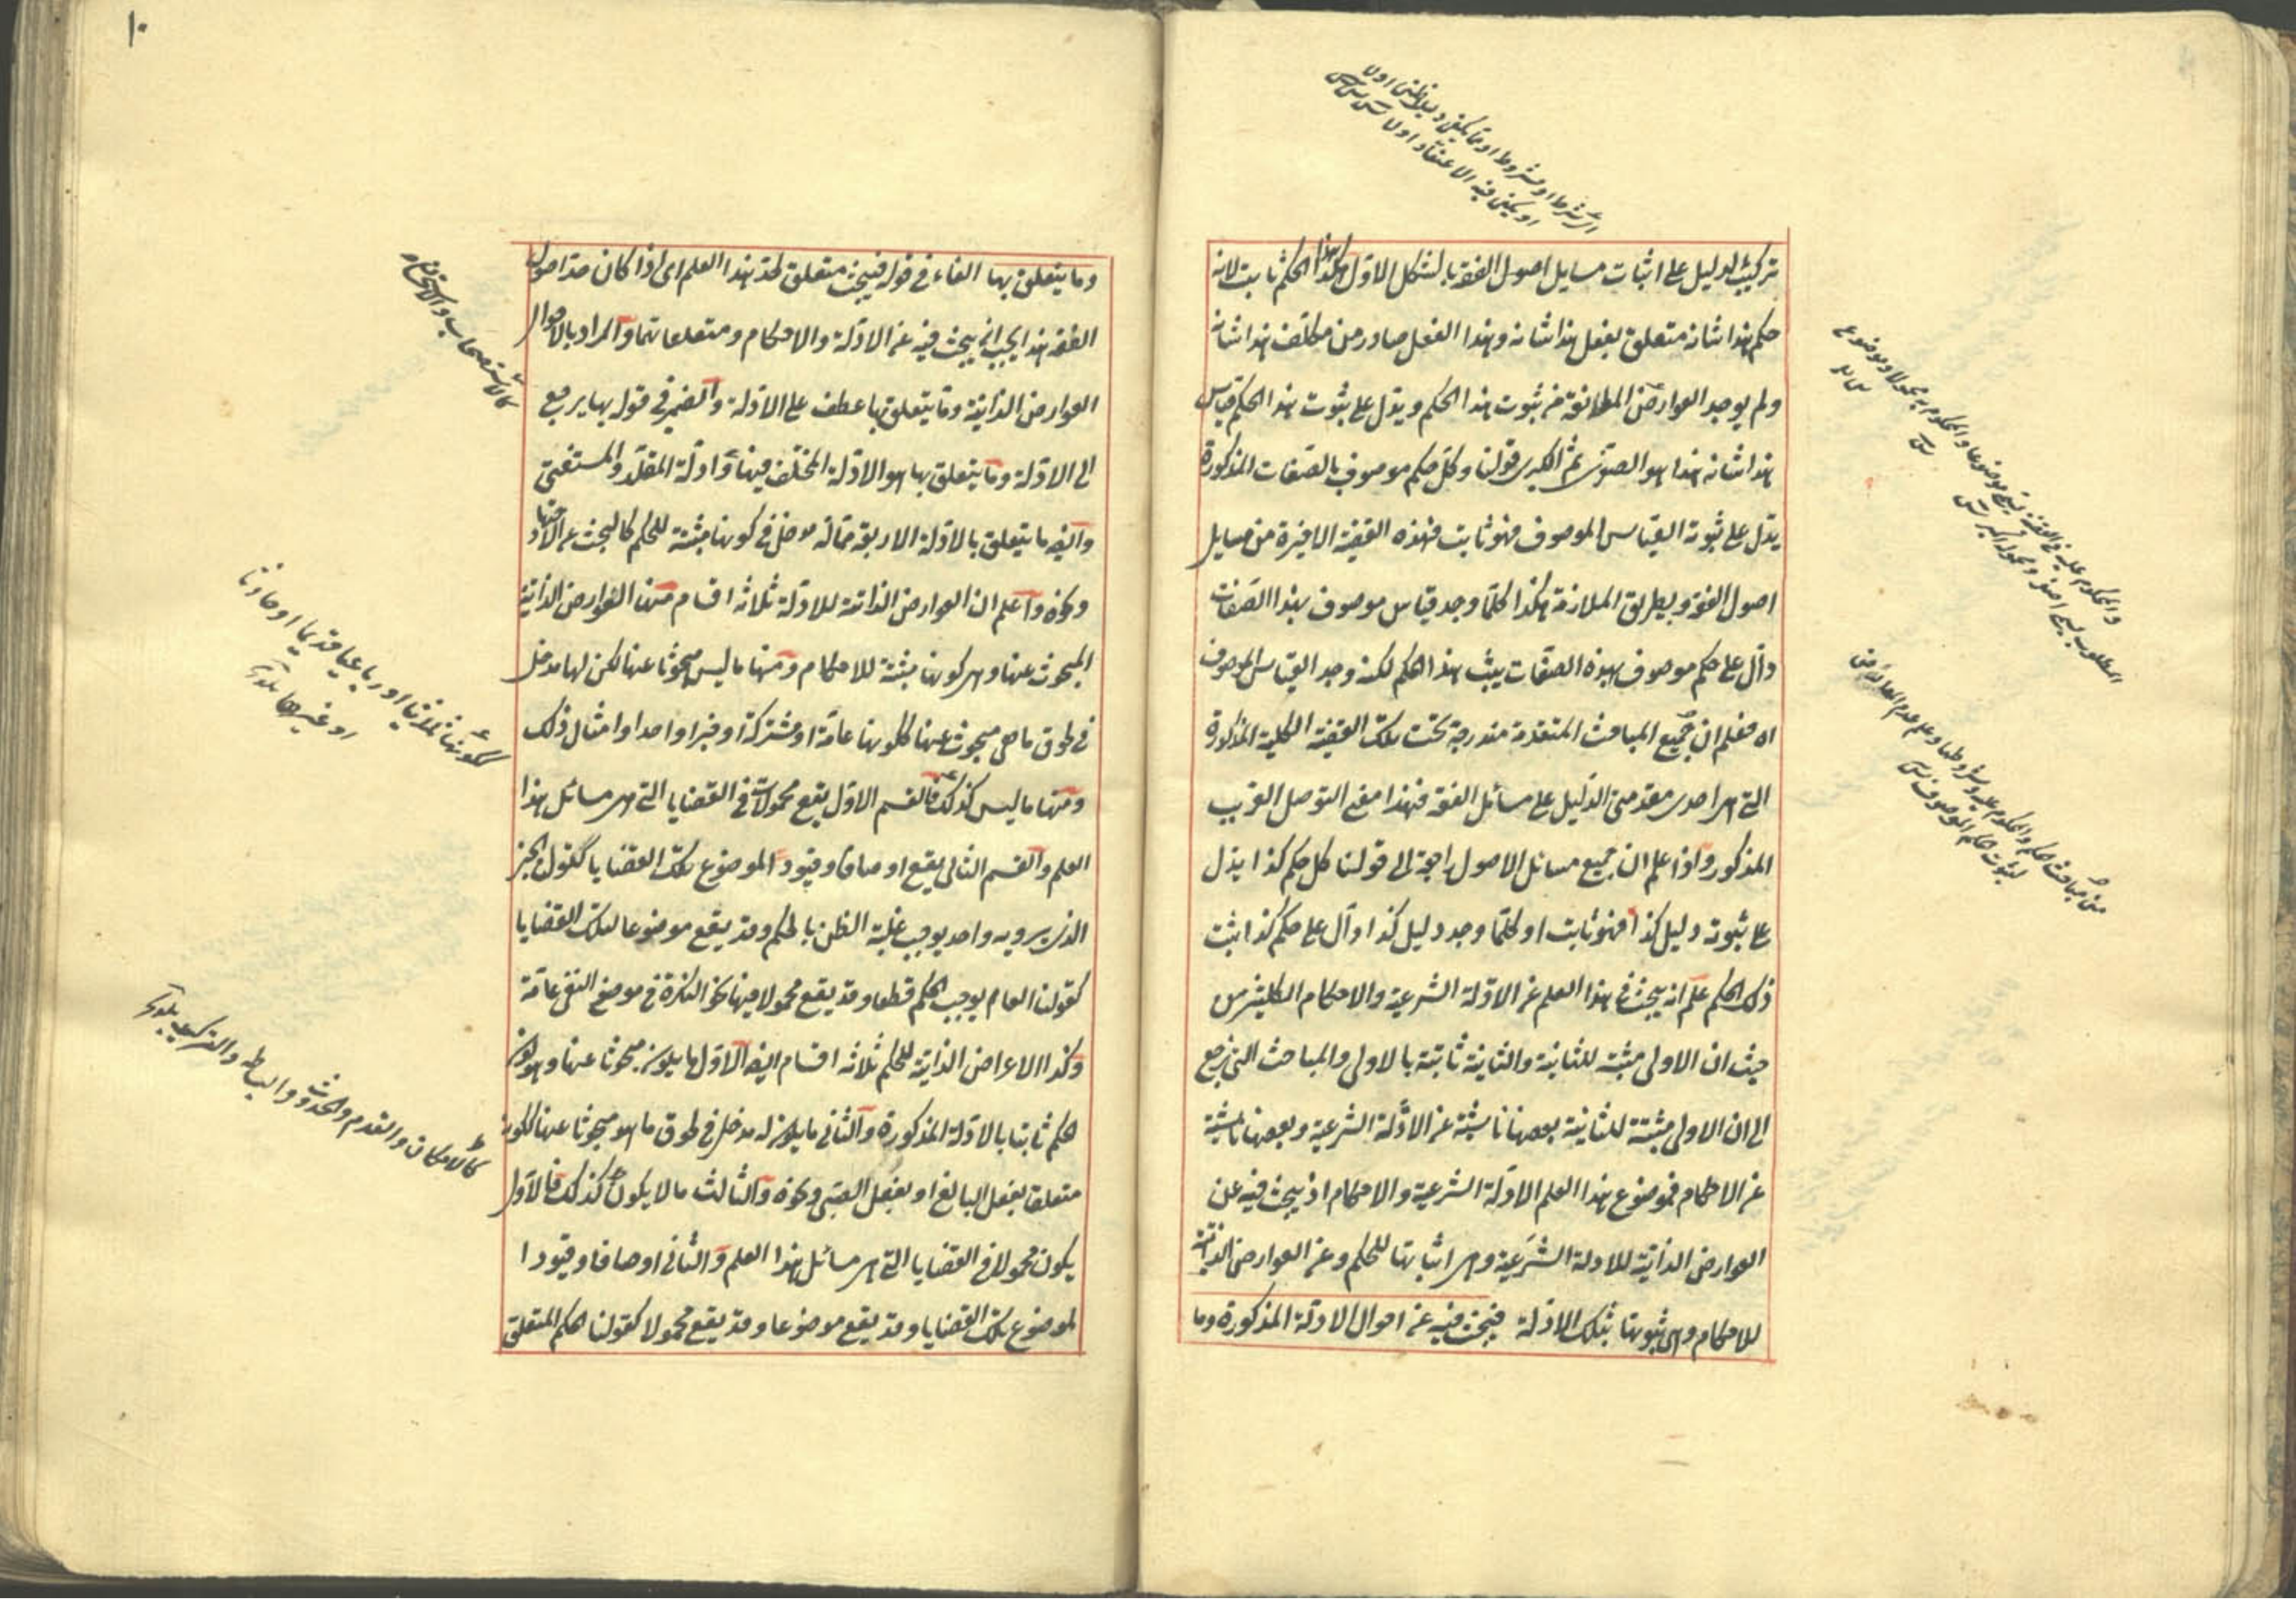 تركيب الدليل على اثبات مسايل اصول الفقه بالشكل الاول هكذا هذا الحكم ثابت لانه
حكم هذا شانه متعلق بفعل هذا شانه وهذا الفعل صادر من مكلف هذا شانه
ولم يوجد العوارض المانعة من ثبوت هذا الحكم ويدل على ثبوت هذا الحكم قياس
هذا شانه هذا هو الصغرى ثم الكبرى قولنا وكل حكم موصوف بالصفات المذكورة
يدل على ثبوته القياس الموصوف فهو ثابت فهذه القضية الاخيرة من مسايل
اصول الفقه وبطريق الملازمة هكذا كلما وجد قياس موصوف بهذا الصفات
دال على حكم موصوف بهذه الصفات يثبت هذا الحكم لكنه وجد القياس الموصوف
اه فعلم ان جميع المباحث المتقدمة مندرجة تحت تلك القضية الكلية المذكورة
التى هى احدى مقدمتى الدليل على مسائل الفقه فهذا معنى التوصل القريب
المذكور واذا علم ان جميع مسائل الاصول راجعة الى قولنا كل حكم كذا يدل
على ثبوته دليل كذا فهو ثابت او كلما وجد دليل كذا دال على حكم كذا يثبت
ذلك الحكم علم انه يبحث فى هذا العلم عن الادلة الشرعية والاحكام الكليتين من
حيث ان الاولى مثبتة للثانية والثانية ثابتة بالاولى والمباحث التى ترجع
الى ان الاولى مثبتة للثانية بعضها ناشية عن الادلة الشرعية وبعضها ناشية
عن الاحكام فموضوع هذا العلم الادلة الشرعية والاحكام اذ يبحث فيه عن
العوارض الذاتية للادلة الشرعية وهى اثباتها للحكم وعن العوارض الذاتية
للاحكام وهى ثبوتها بتلك الادلة فيبحث فيه عن احوال الادلة المذكورة وما
والمحكوم عليه فى القضية يسمى موضوعا والمحكوم به محمولا وموضوع
المطلوب يسمى اصغر ومحموله اكبر
وما يتعلق بها الفاء فى قوله فيبحث متعلق بحد هذا العلم اى اذا كان حد اصول
الفقه هذا يجب ان يبحث فيه عن الادلة والاحكام ومتعلقاتهما والمراد بالاحوال
العوارض الذاتية وما يتعلق بها عطف على الادلة والضمير فى قوله بها يرجع
الى الادلة وما يتعلق بها هو الادلة المختلف فيها وادلة المقلد والمستفتى
وايضا ما يتعلق بالادلة الاربعة مما له مدخل فى كونها مثبتة للحكم كالبحث عن الاجتهاد
ونحوه واعلم ان العوارض الذاتية للادلة ثلاثة اقسام منها العوارض الذاتية
المبحوث عنها وهى كونها مثبتة للاحكام ومنها ما ليس مبحوثا عنها لكن لها مدخل
فى لحوق ما هى مبحوث عنها ككونها عامة او مشتركة او خبرا واحدا وامثال ذلك
ومنها ما ليس كذلك فالقسم الاول يقع محمولات فى القضايا التى هى مسائل هذا
العلم والقسم الثانى يقع اوصافا وقيودا لموضوع تلك القضايا كقولنا الخبر
الذى يرويه واحد يوجب غلبة الظن بالحكم وقد يقع موضوعا لتلك القضايا
كقولنا العام يوجب الحكم قطعا وقد يقع محمولا فيها نحو النكرة فى موضع النفى عامة
وكذا الاعراض الذاتية للحكم ثلاثة اقسام ايضا الاول ما يكون مبحوثا عنها وهو كون
الحكم ثابتا بالادلة المذكورة والثانى ما يكون له مدخل فى لحوق ما هو مبحوثا عنها ككونه
متعلقا بفعل البالغ او بفعل الصبى ونحوه والثالث ما لا يكون كذلك فالاول
يكون محمولا فى القضايا التى هى مسائل هذا العلم والثانى اوصافا وقيودا
لموضوع تلك القضايا وقد يقع موضوعا وقد يقع محمولا كقولنا الحكم المتعلق
١٠
كالاستصحاب والاستحسان
ككونها ثلاثيا او رباعيا قديما او حادثا
او غيرها
كالامكان والقدم والحدوث والبساطة والتركيب